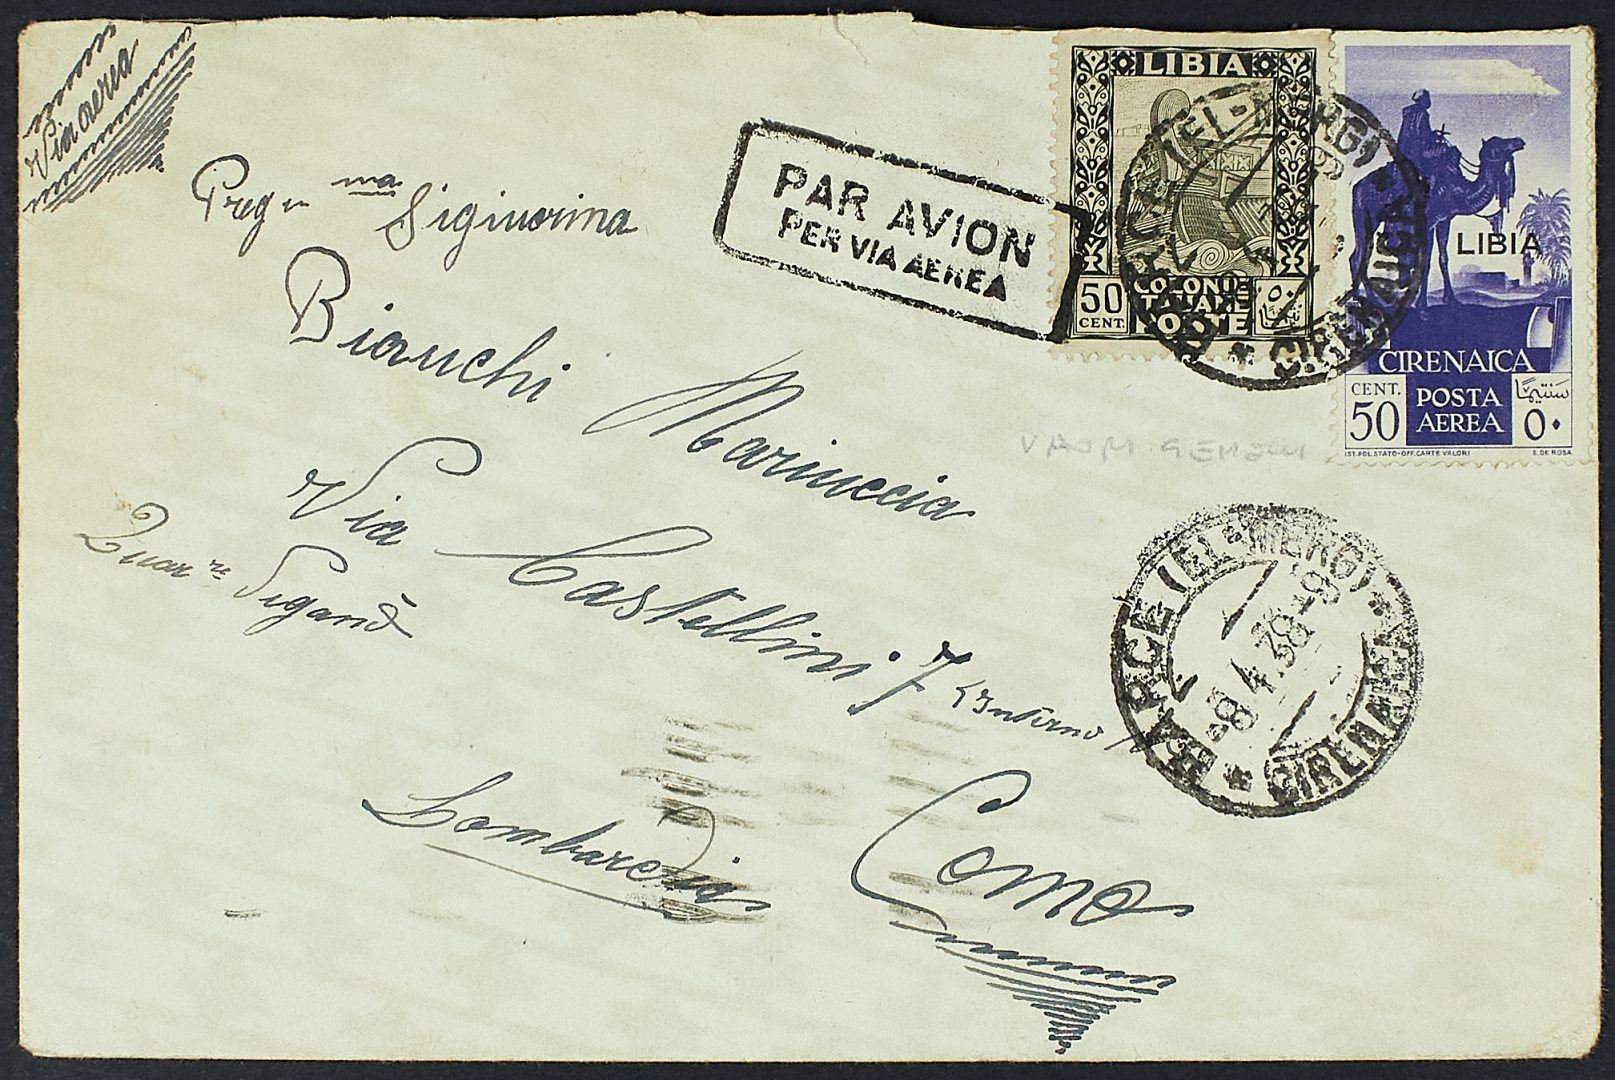 Via aerea
Preg ma Signorina
Bianchi Mariuccia
Via Castellini 7 Interno
Lombardia Como
PAR AVION
PER VIA AEREA
LIBIA
50
CENT.
COLONIE
ITALIANE
POSTE
LIBIA
CIRENAICA
CENT.
50
POSTA
AEREA
سنتيما
٥٠
IST.POL.STATO-OFF.CARTE VALORI
E. DE ROSA
BARCE (EL-MERG)
CIRENAICA
BARCE (EL-MERG)
-8.4.38-9
CIRENAICA